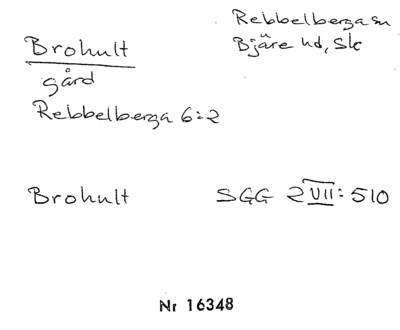 Rebbelberga sn
Brohult
Bjäre hd, Sk
gård
Rebbelberga 6:2
Brohult SGG 2 VII: 510
Nr 16348